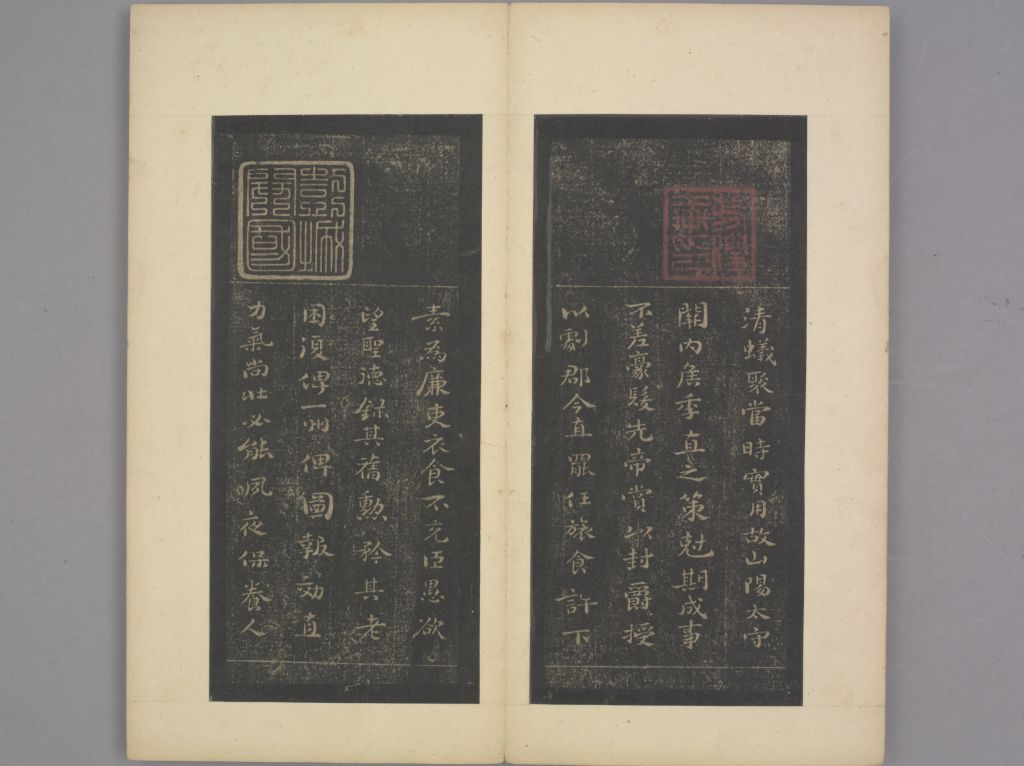 清蟻聚當時實用故山陽太守
關内侯季直之策尅期成事
不差豪髮先帝賞以封爵授
以劇郡今直罷任旅食許下
素為廉吏衣食不充臣愚欲
望聖德錄其舊勳矜其老
困復俾一州俾圖報効直
力氣尚壯必能夙夜保養人
彭城開國